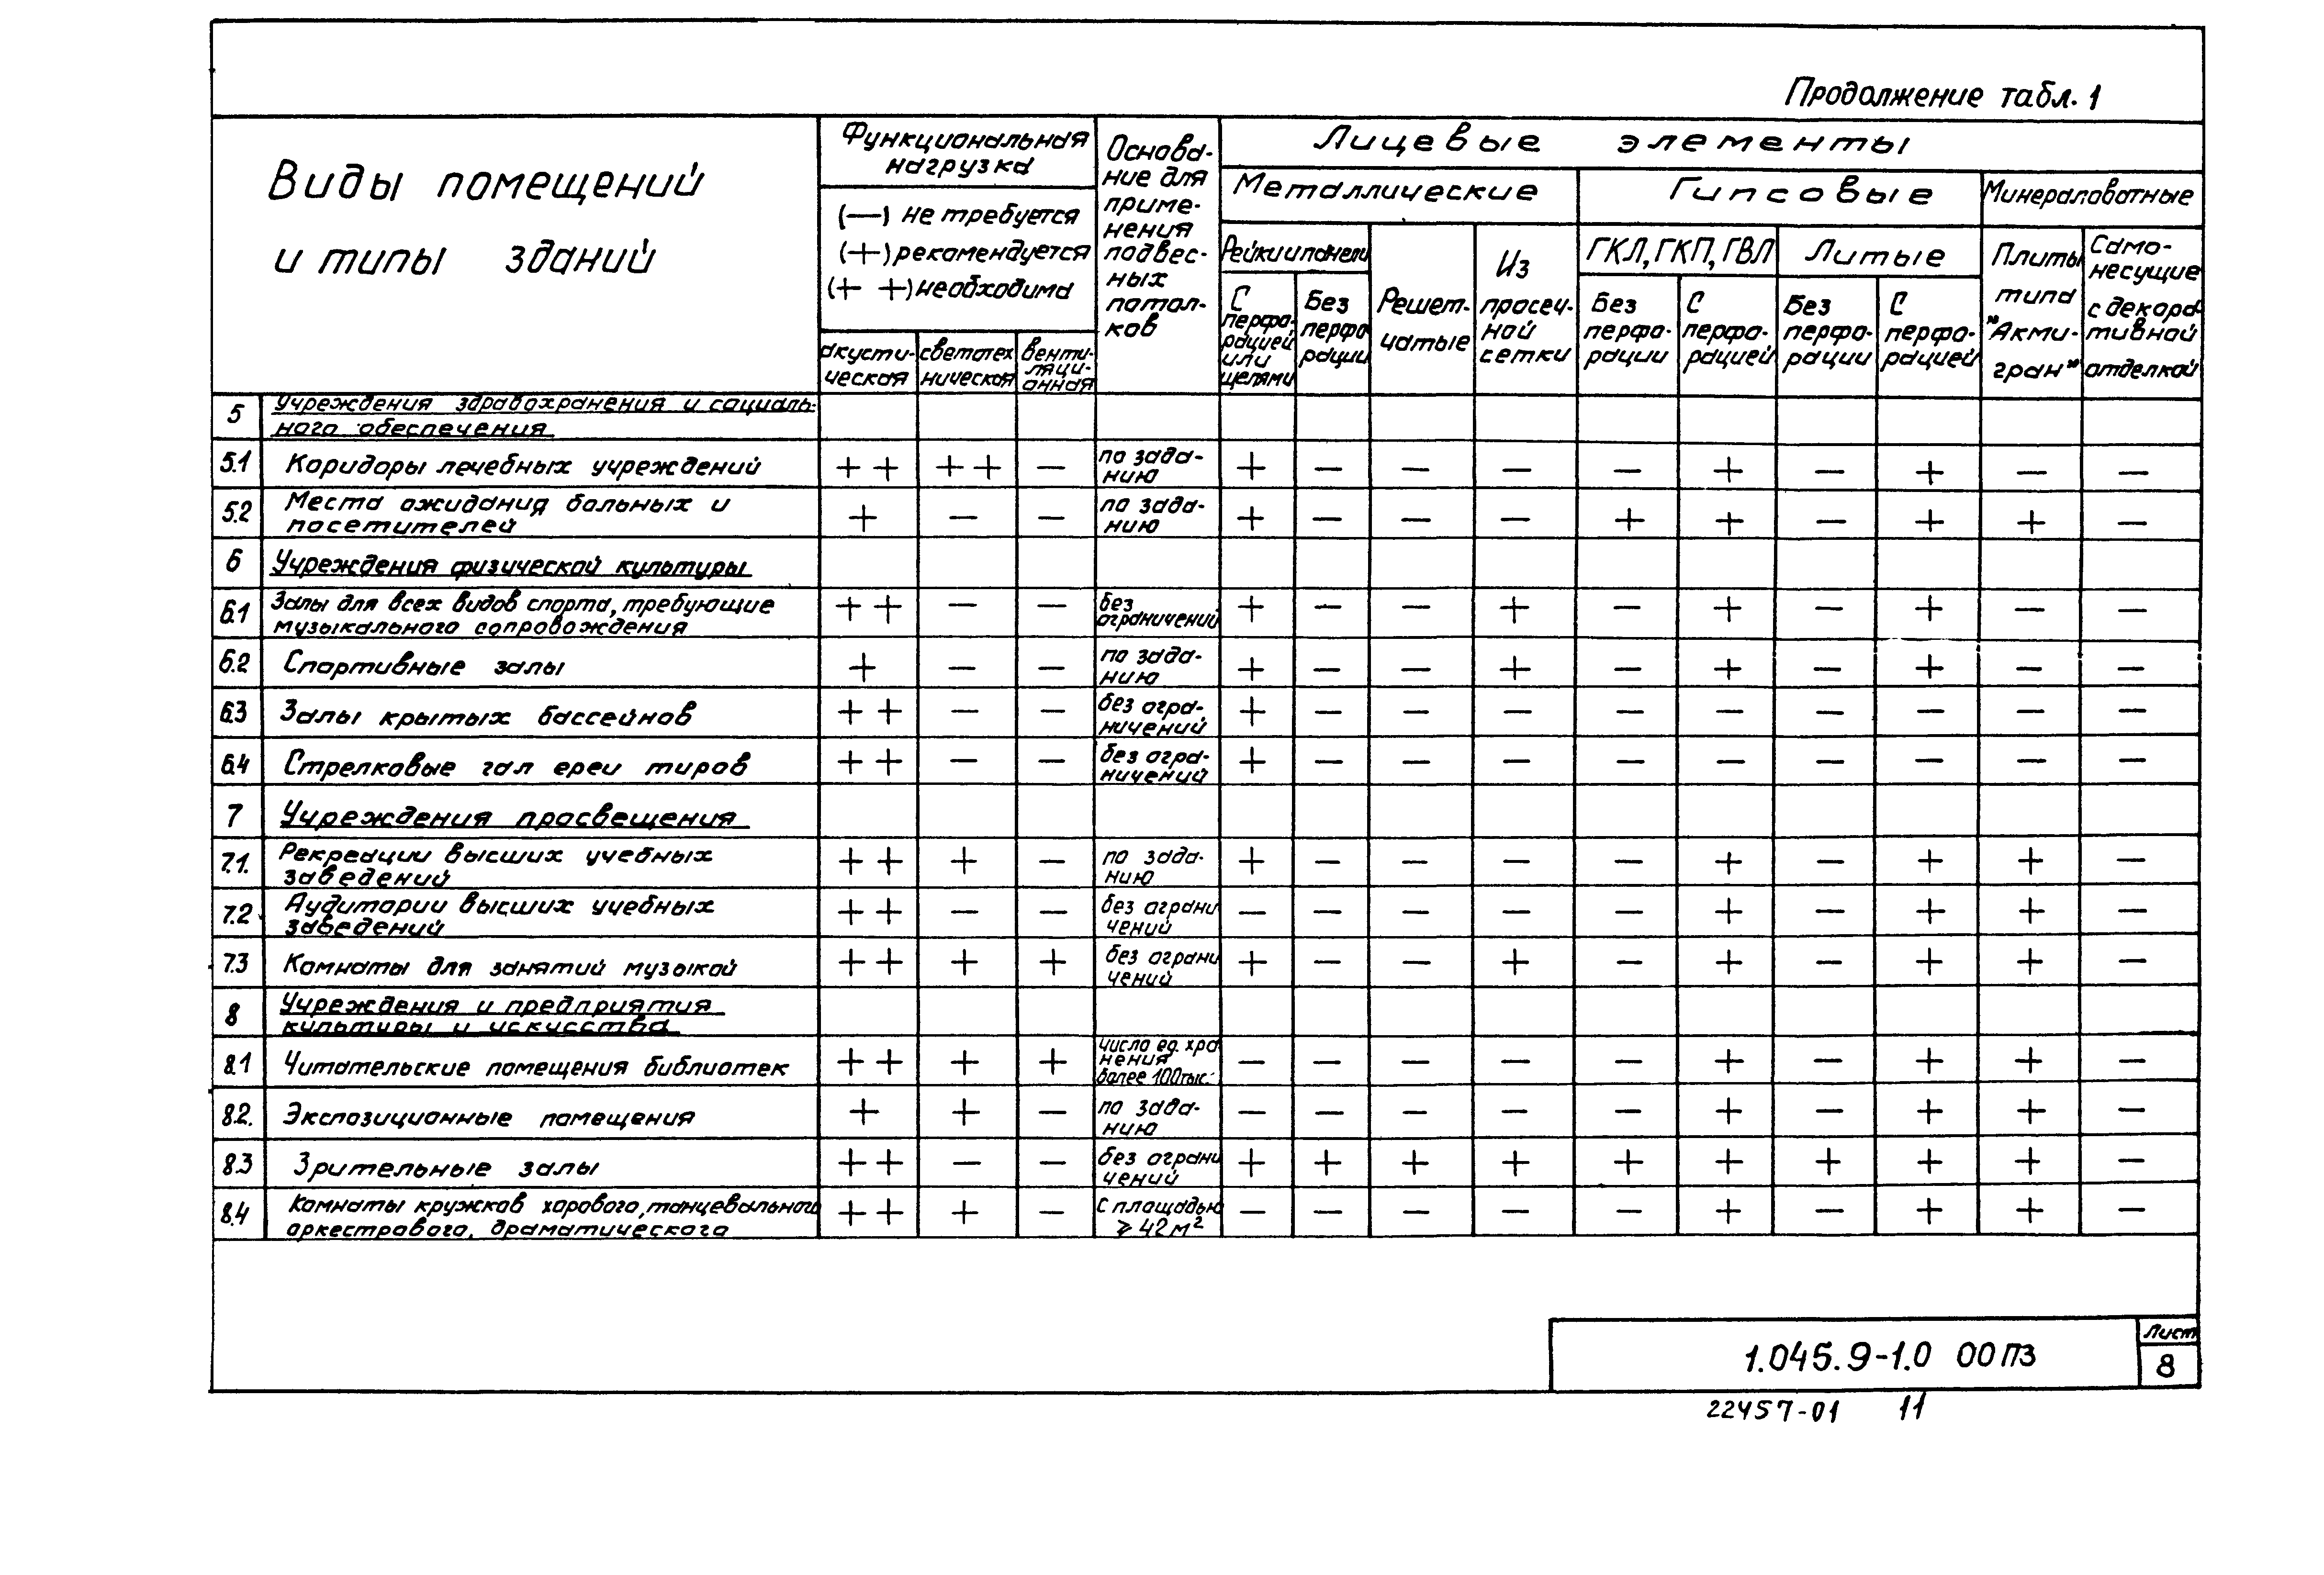 Продолжение табл. 1
Виды помещений
и типы зданий
Функциональная
нагрузка
(—) не требуется
(+) рекомендуется
(+ +) необходима
акусти-
ческая
светотех
ническая
венти-
ляци-
онная
Основа-
ние для
приме-
нения
подвес-
ных
потол-
ков
Лицевые элементы
Металлические
Гипсовые
Минераловатные
Рейки и панели
С
перфо-
рацией
или
щелями
Без
перфо
рации
Решет-
чатые
Из
просеч-
ной
сетки
ГКЛ, ГКП, ГВЛ
Без
перфо-
рации
С
перфо-
рацией
Литые
Без
перфо-
рации
С
перфо-
рацией
Плиты
типа
"Акми-
гран"
Само-
несущие
с декора
тивной
отделкой
5 Учреждения здравохранения и социаль-
ного обеспечения
5.1 Коридоры лечебных учреждений + + + + — по зада-
нию + — — — — + — + — —
5.2 Места ожидания больных и
посетителей + — — по зада-
нию + — — — + + — + + —
6 Учреждения физической культуры
6.1 Залы для всех видов спорта, требующие
музыкального сопровождения + + — — без
ограничений + — — + — + — + — —
6.2 Спортивные залы + — — по зада-
нию + — — + — + — + — —
6.3 Залы крытых бассейнов + + — — без огра-
ничений + — — — — — — — — —
6.4 Стрелковые галереи тиров + + — — без огра-
ничений + — — — — — — — — —
7 Учреждения просвещения
7.1. Рекреации высших учебных
заведений + + + — по зада-
нию + — — — — + — + + —
7.2 Аудитории высших учебных
заведений + + — — без ограни
чений — — — — — + — + + —
7.3 Комнаты для занятий музыкой + + + + без ограни
чений + — — + — + — + + —
8 Учреждения и предприятия
культуры и искусства
8.1 Читательские помещения библиотек + + + + число ед. хра
нения
более 100тыс. — — — — — + — + + —
8.2. Экспозиционные помещения + + — по зада-
нию — — — — — + — + + —
8.3 Зрительные залы + + — — без ограни
чений + + + + + + + + + —
8.4 Комнаты кружков хорового, танцевального
оркестрового, драматического + + + — С площадью
⩾ 42 м² — — — — — + — + + —
1.045.9-1.0 00ПЗ
Лист
8
22457-01 11